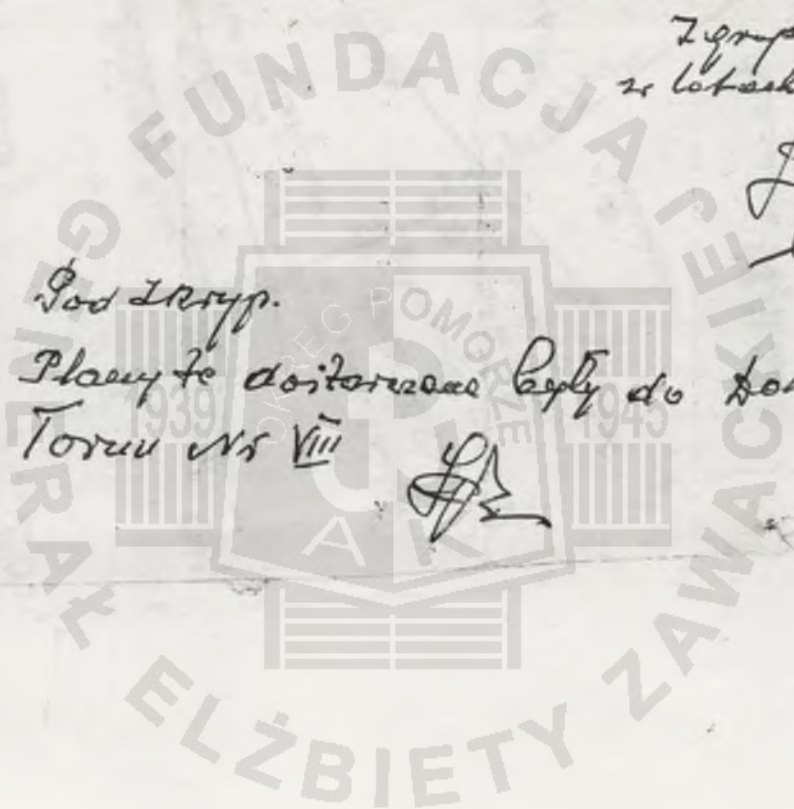 w latach
Pod Skryp.
Plany te dostarczane były do
Toruń Nr VIII
FUNDACJA
GENERAŁ ELŻBIETY ZAWACKIEJ
OKRĘG POMORZE
1939
1945
AK